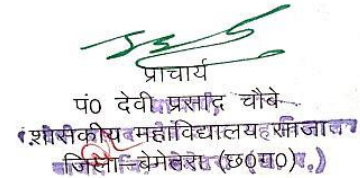 प्राचार्य
पं० देवी प्रसाद चौबे
शासकीय महाविद्यालय साजा
जिला-बेमेतरा (छ०ग०)